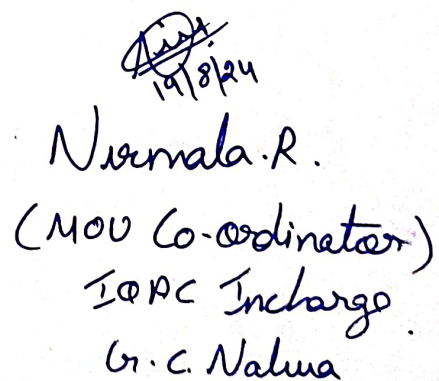 19/8/24
Nirmala.R.
(MOU Co-ordinator)
IQAC Incharge
G.C. Nalwa